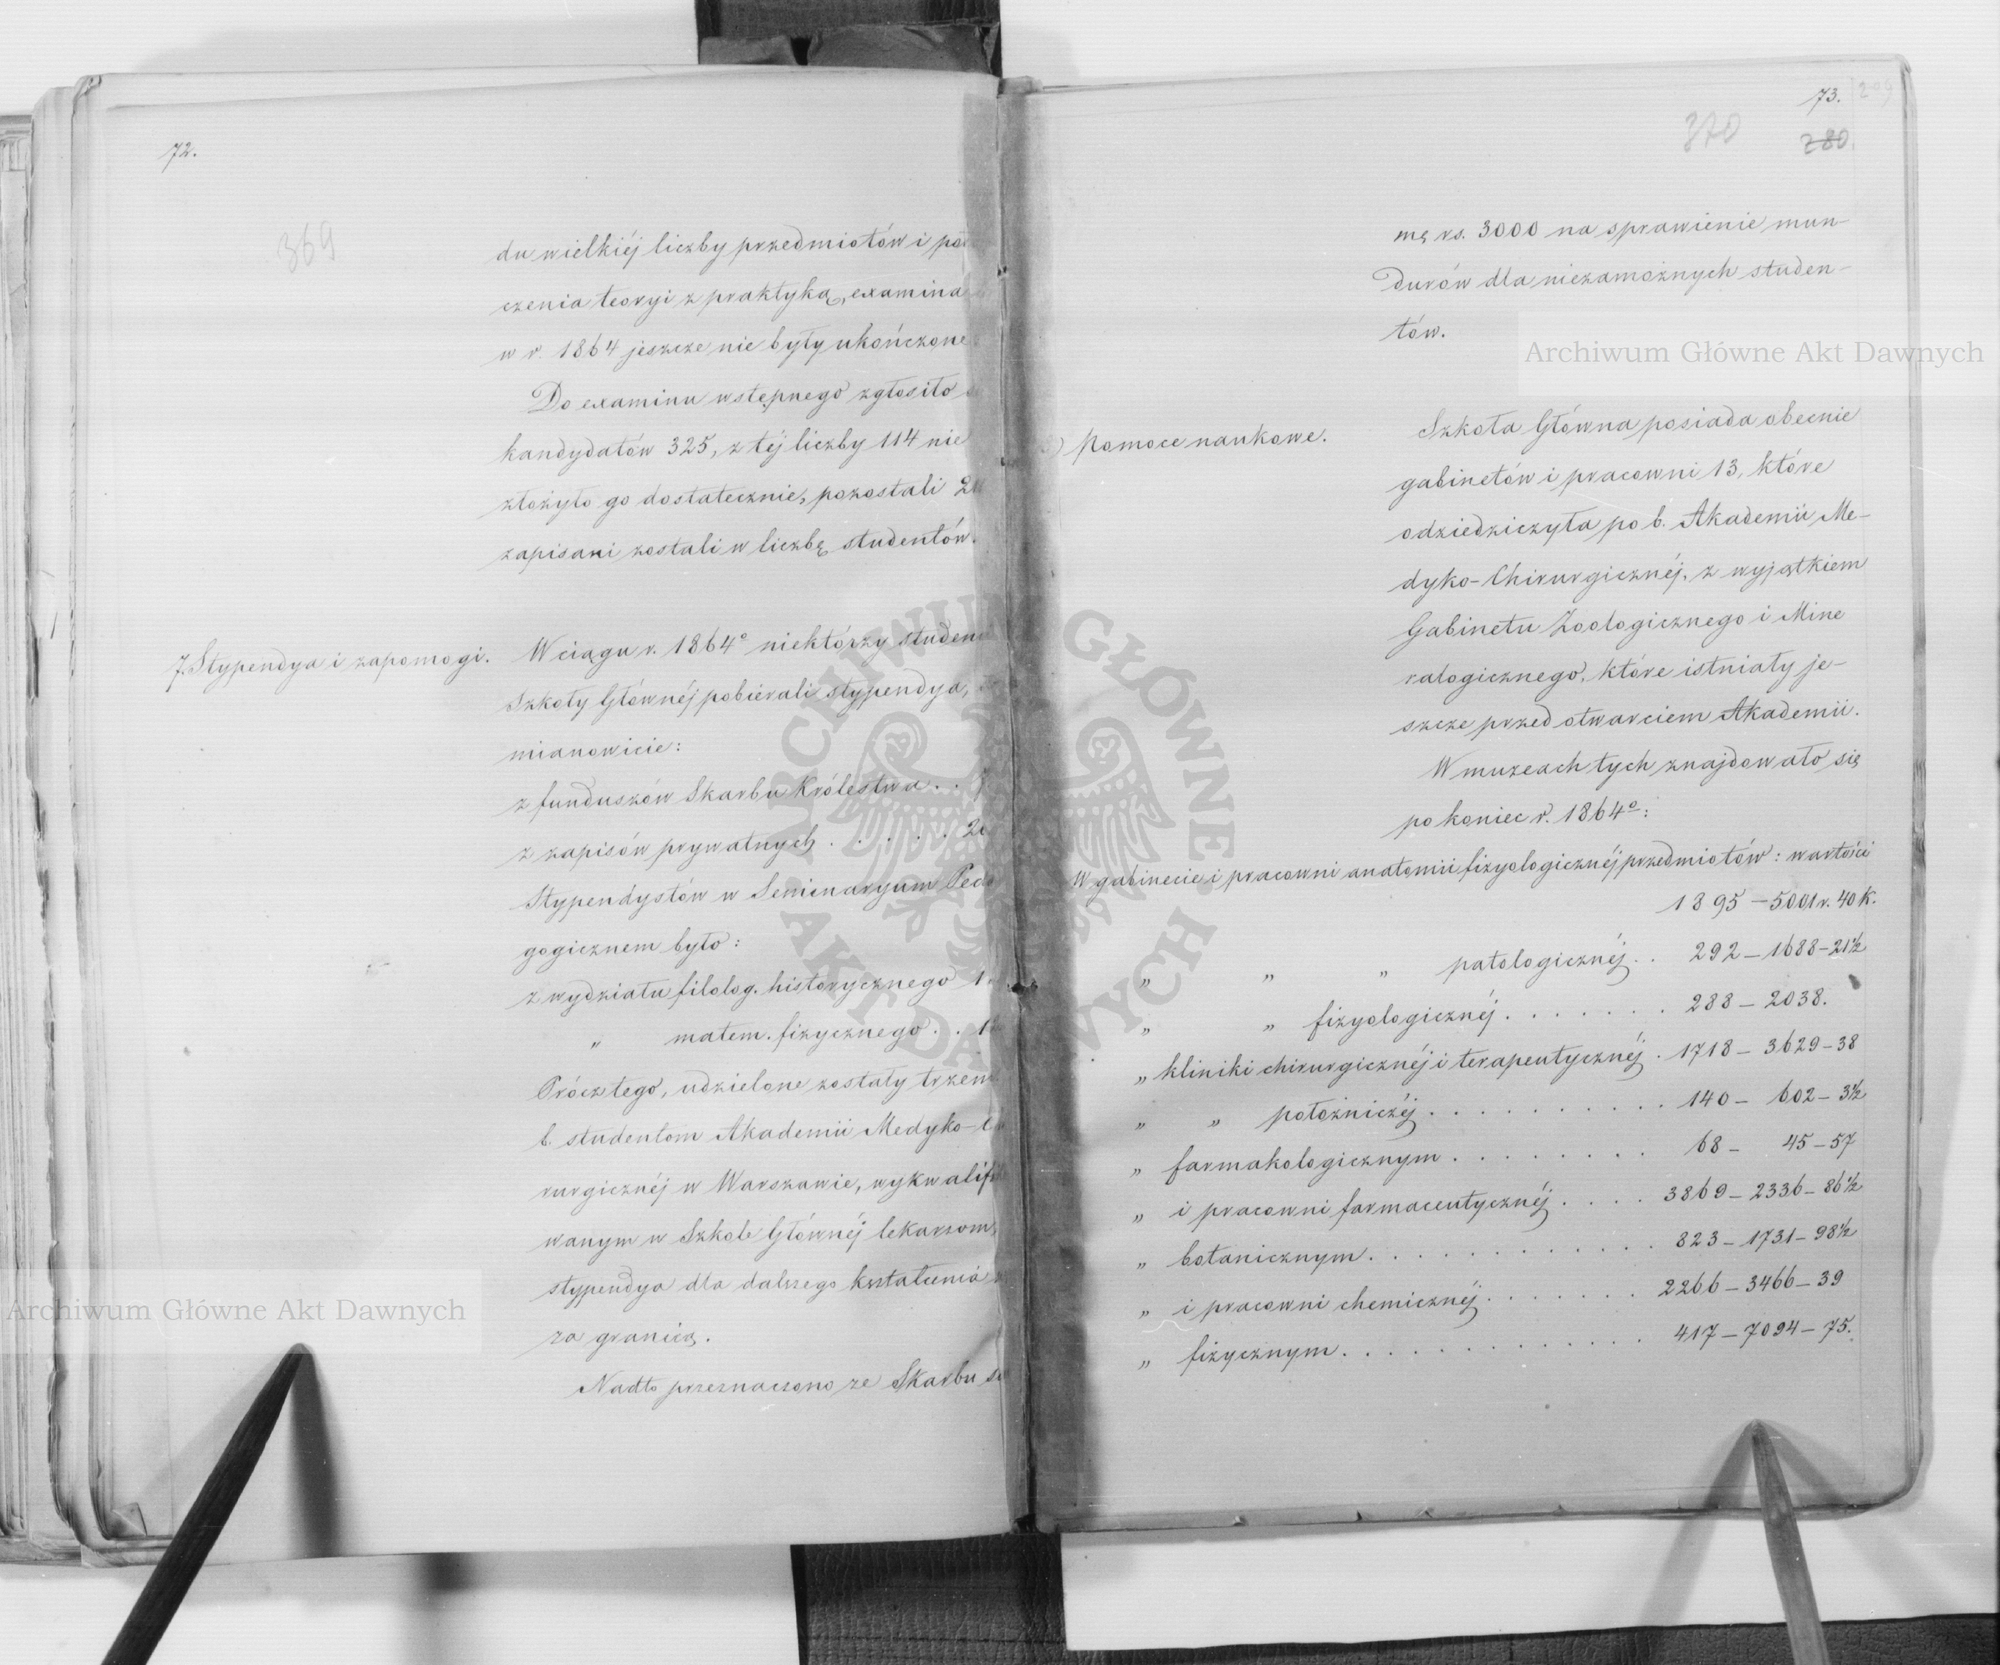 72.
369
du wielkiéj liczby przedmiotów i
czenia teoryi z praktyką, examina
w r. 1864 jeszcze nie były ukończone
Do examinu wstępnego zgłosiło
kandydatów 325, z téj liczby 114 nie
złożyło go dostatecznie, pozostali
zapisani zostali w liczbę studentów.
7. Stypendya i zapomogi.
W ciągu r. 1864º niektórzy studen
Szkoły Głównéj pobierali stypendya,
mianowicie:
z funduszów Skarbu Królestwa . .
z zapisów prywatnych . . . . .
Stypendystów w Seminaryum Peda
gogicznem było:
z wydziału filolog. historycznego
„ matem. fizycznego . .
Prócz tego, udzielone zostały trzem
b. studentom Akademii Medyko-C
rurgicznéj w Warszawie, wykwalifi
wanym w Szkole Głównéj lekarzom,
stypendya dla dalszego kształcenia
za granicą.
Nadto przeznaczono ze Skarbu su
73.
209
370
280.
mę rs. 3000 na sprawienie mun-
durów dla niezamożnych studen-
tów.
) Pomoce naukowe.
Szkoła Główna posiada obecnie
gabinetów i pracowni 13, które
odziedziczyła po b. Akademii Me-
dyko-Chirurgicznéj, z wyjątkiem
Gabinetu Zoologicznego i Mine
ralogicznego, które istniały je-
szcze przed otwarciem Akademii.
W muzeach tych znajdowało się
po koniec r. 1864º:
W gabinecie i pracowni anatomii fizyologicznéj przedmiotów: wartości
1895 – 5001 r. 40 k.
„ „ „ patologicznéj . . 292 – 1688 – 21½
„ „ fizyologicznéj . . . . . . . 288 – 2038.
„ kliniki chirurgicznéj i terapeutycznéj . 1718 – 3629 – 38
„ „ położniczéj . . . . . . . . . . 140 – 602 – 3½
„ farmakologicznym . . . . . . . . 68 – 45 – 57
„ i pracowni farmaceutycznéj . . . . 3869 – 2336 – 86½
„ botanicznym . . . . . . . . . . . . 823 – 1731 – 98½
„ i pracowni chemicznéj . . . . . . . 2266 – 3466 – 39
„ fizycznym . . . . . . . . . . . . . 417 – 7094 – 75.
Archiwum Główne Akt Dawnych
Archiwum Główne Akt Dawnych
ARCHIWUM GŁÓWNE AKT DAWNYCH